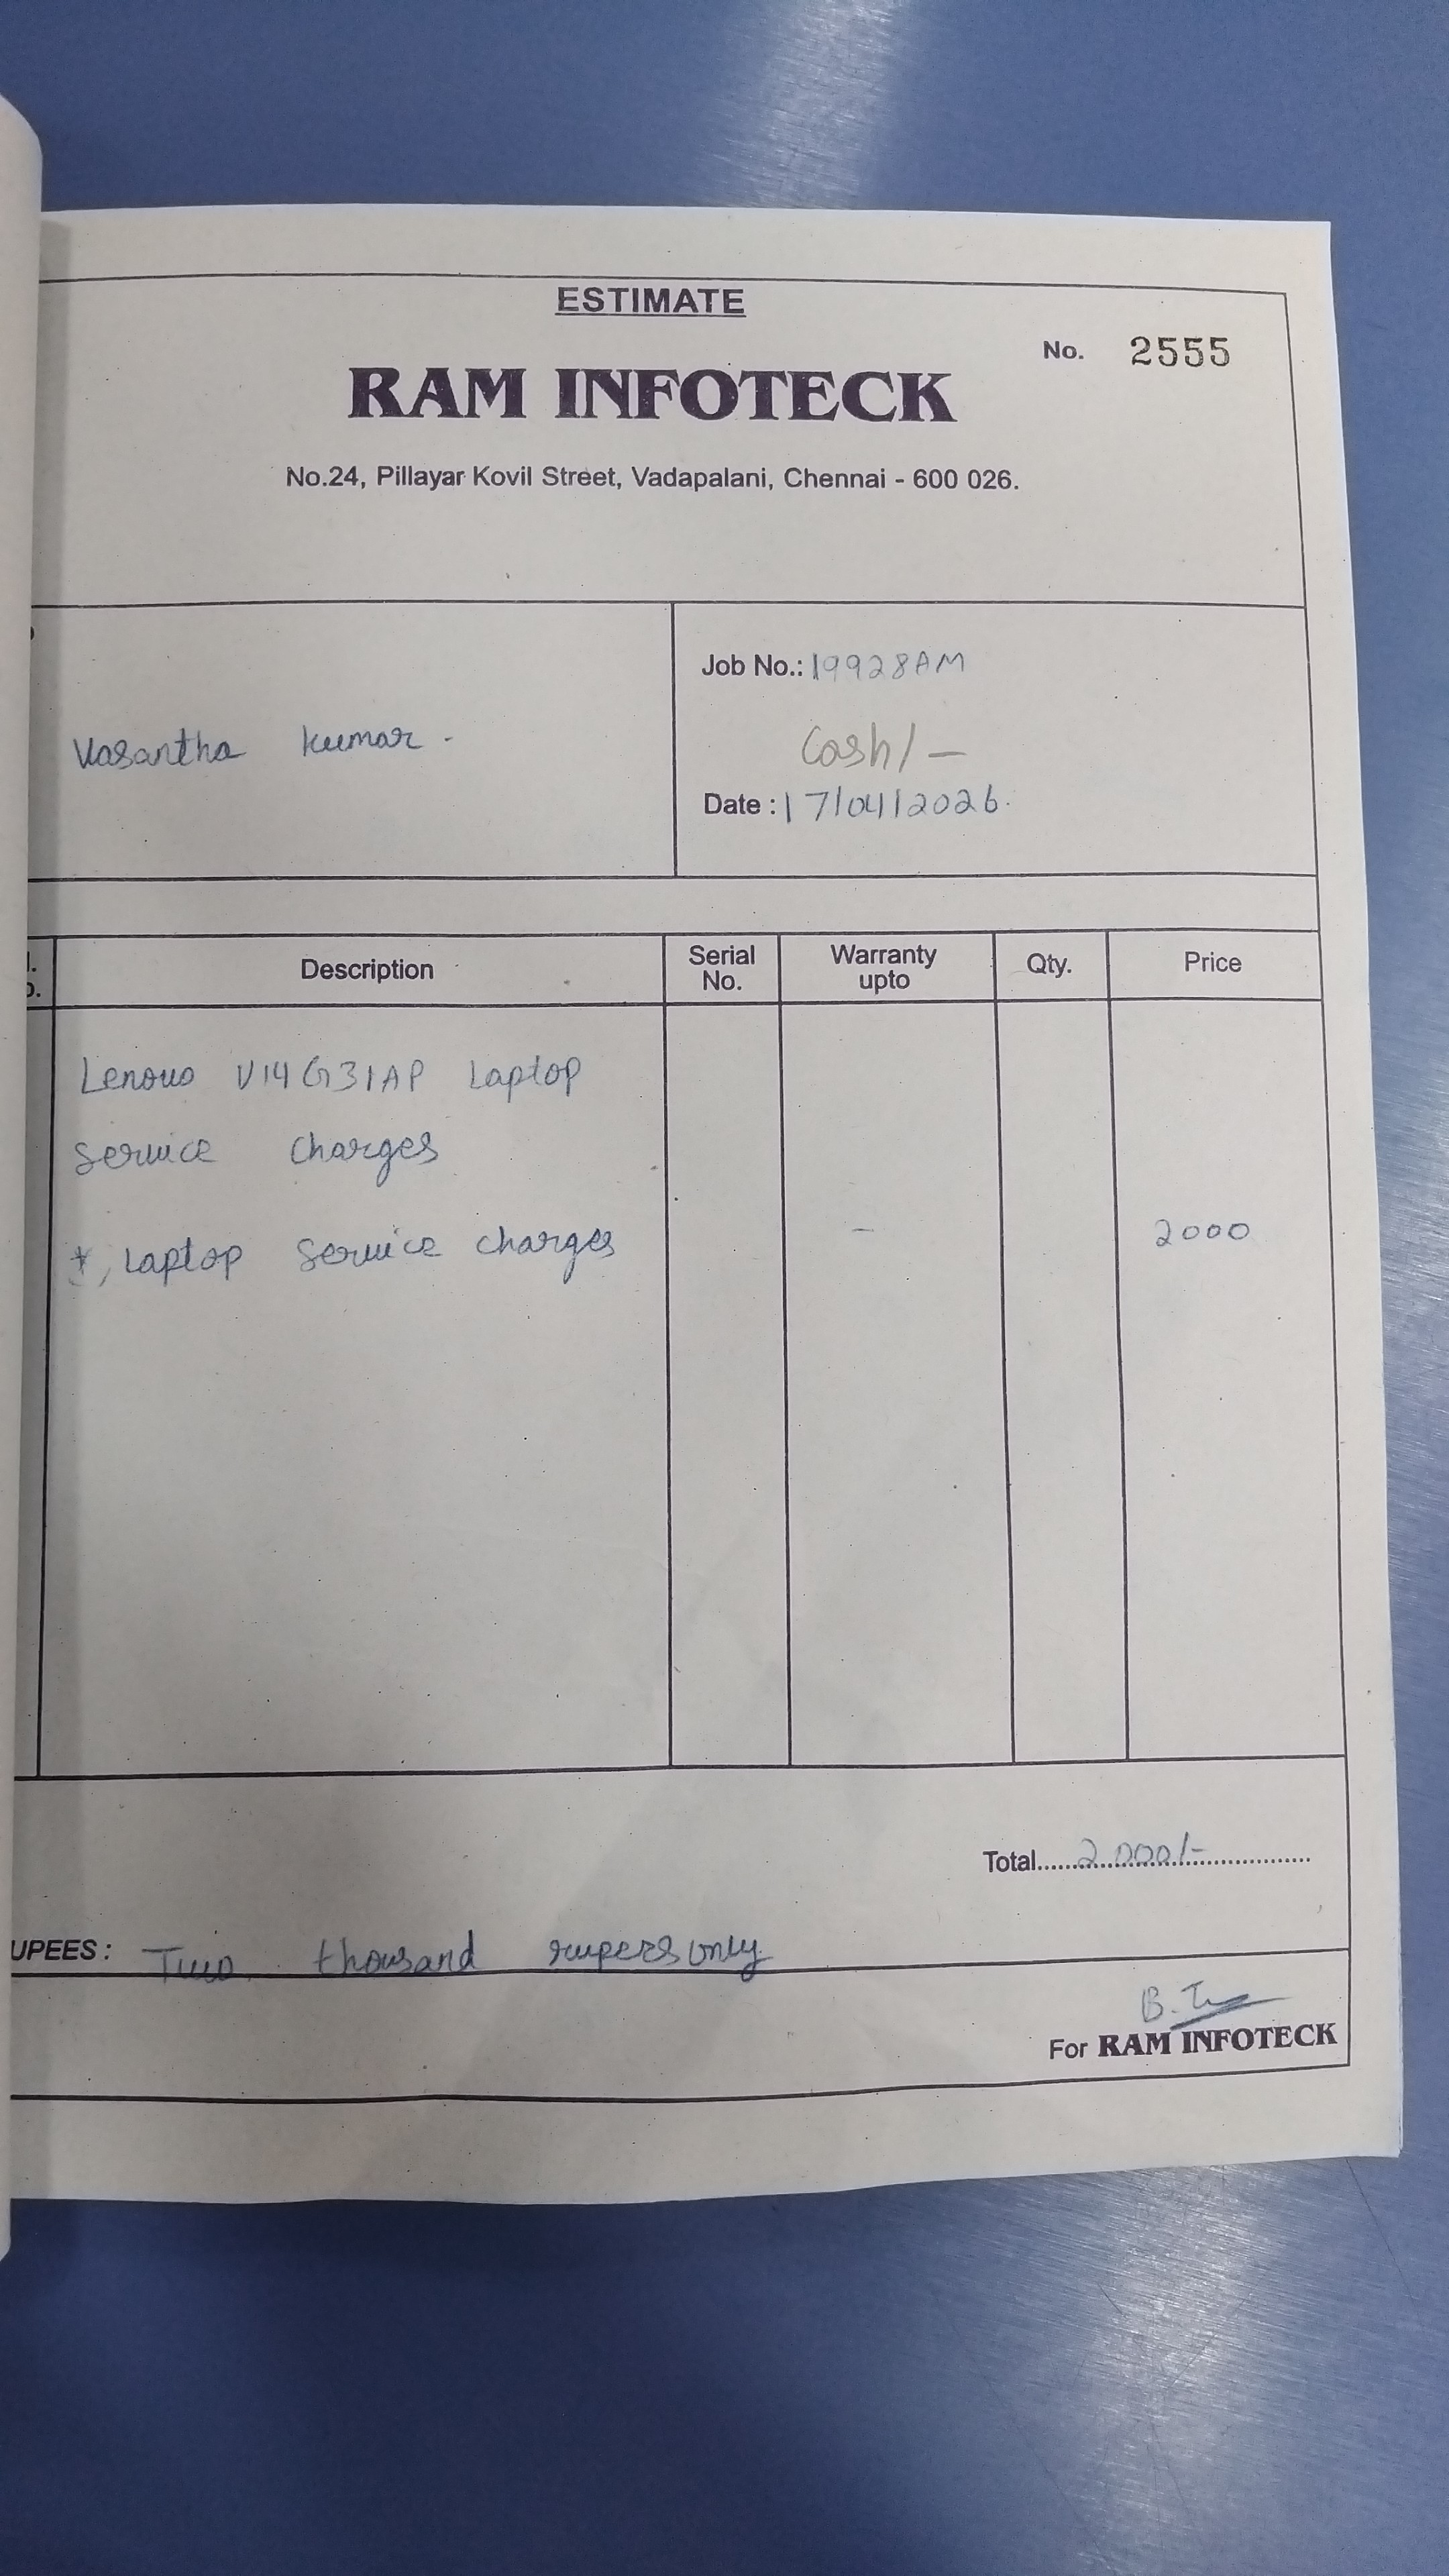 ESTIMATE
No. 2555
RAM INFOTECK
No.24, Pillayar Kovil Street, Vadapalani, Chennai - 600 026.
Vasantha kumar.
Job No.: 19928AM
Cash/-
Date : 17/04/2026.
Description Serial No. Warranty upto Qty. Price
Lenovo V14 G31AP Laptop
Service Charges
*, Laptop Service charges - 2000
Total.....2000/-.....
UPEES : Two thousand rupees only
For RAM INFOTECK